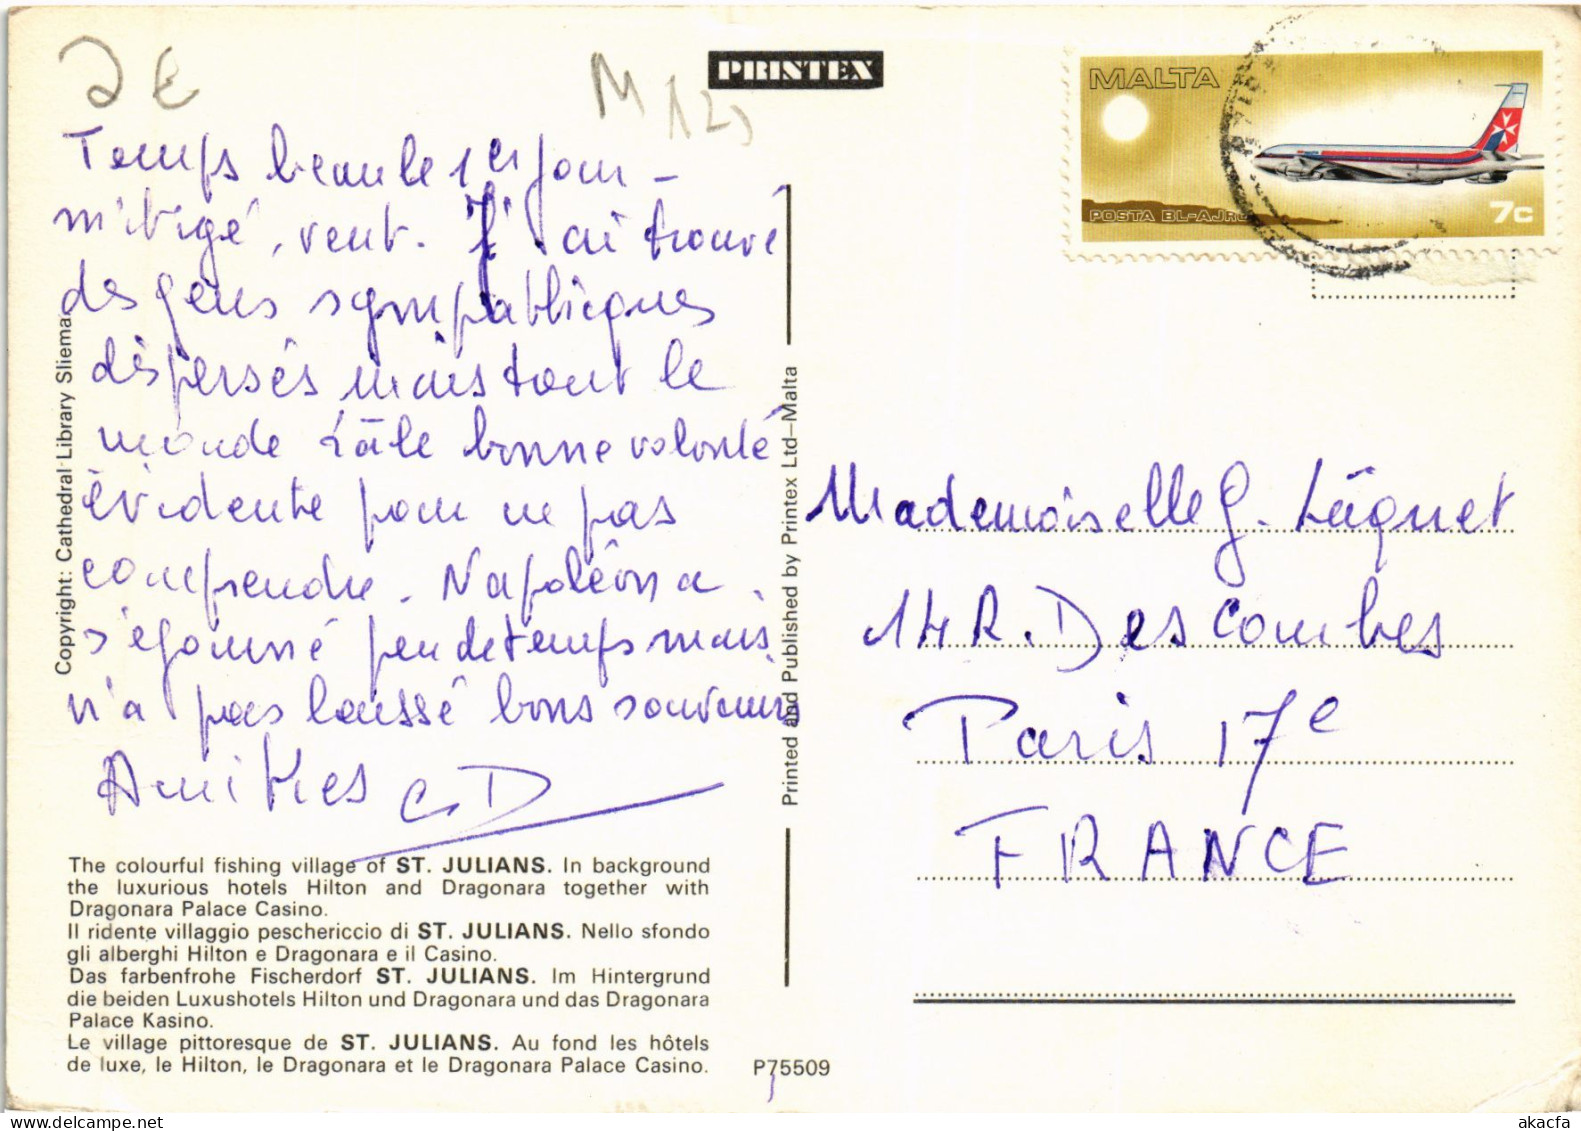 2 €
M 125
PRINTEX
MALTA
POSTA BL-AJRU
7c
Temps beau le 1er jour -
mitigé, vent. J'ai trouvé
des gens sympathiques
dispersés mais tout le
monde a la bonne volonté
évidente pour ne pas
comprendre. Napoléon a
séjourné peu de temps mais
n'a pas laissé bons souvenirs
Amitiés CD
Mademoiselle G. Läquet
14 R. Descombes
Paris 17e
FRANCE
Copyright: Cathedral Library Sliema.
Printed and Published by Printex Ltd—Malta
The colourful fishing village of ST. JULIANS. In background
the luxurious hotels Hilton and Dragonara together with
Dragonara Palace Casino.
Il ridente villaggio peschericcio di ST. JULIANS. Nello sfondo
gli alberghi Hilton e Dragonara e il Casino.
Das farbenfrohe Fischerdorf ST. JULIANS. Im Hintergrund
die beiden Luxushotels Hilton und Dragonara und das Dragonara
Palace Kasino.
Le village pittoresque de ST. JULIANS. Au fond les hôtels
de luxe, le Hilton, le Dragonara et le Dragonara Palace Casino.
P75509
akacfa